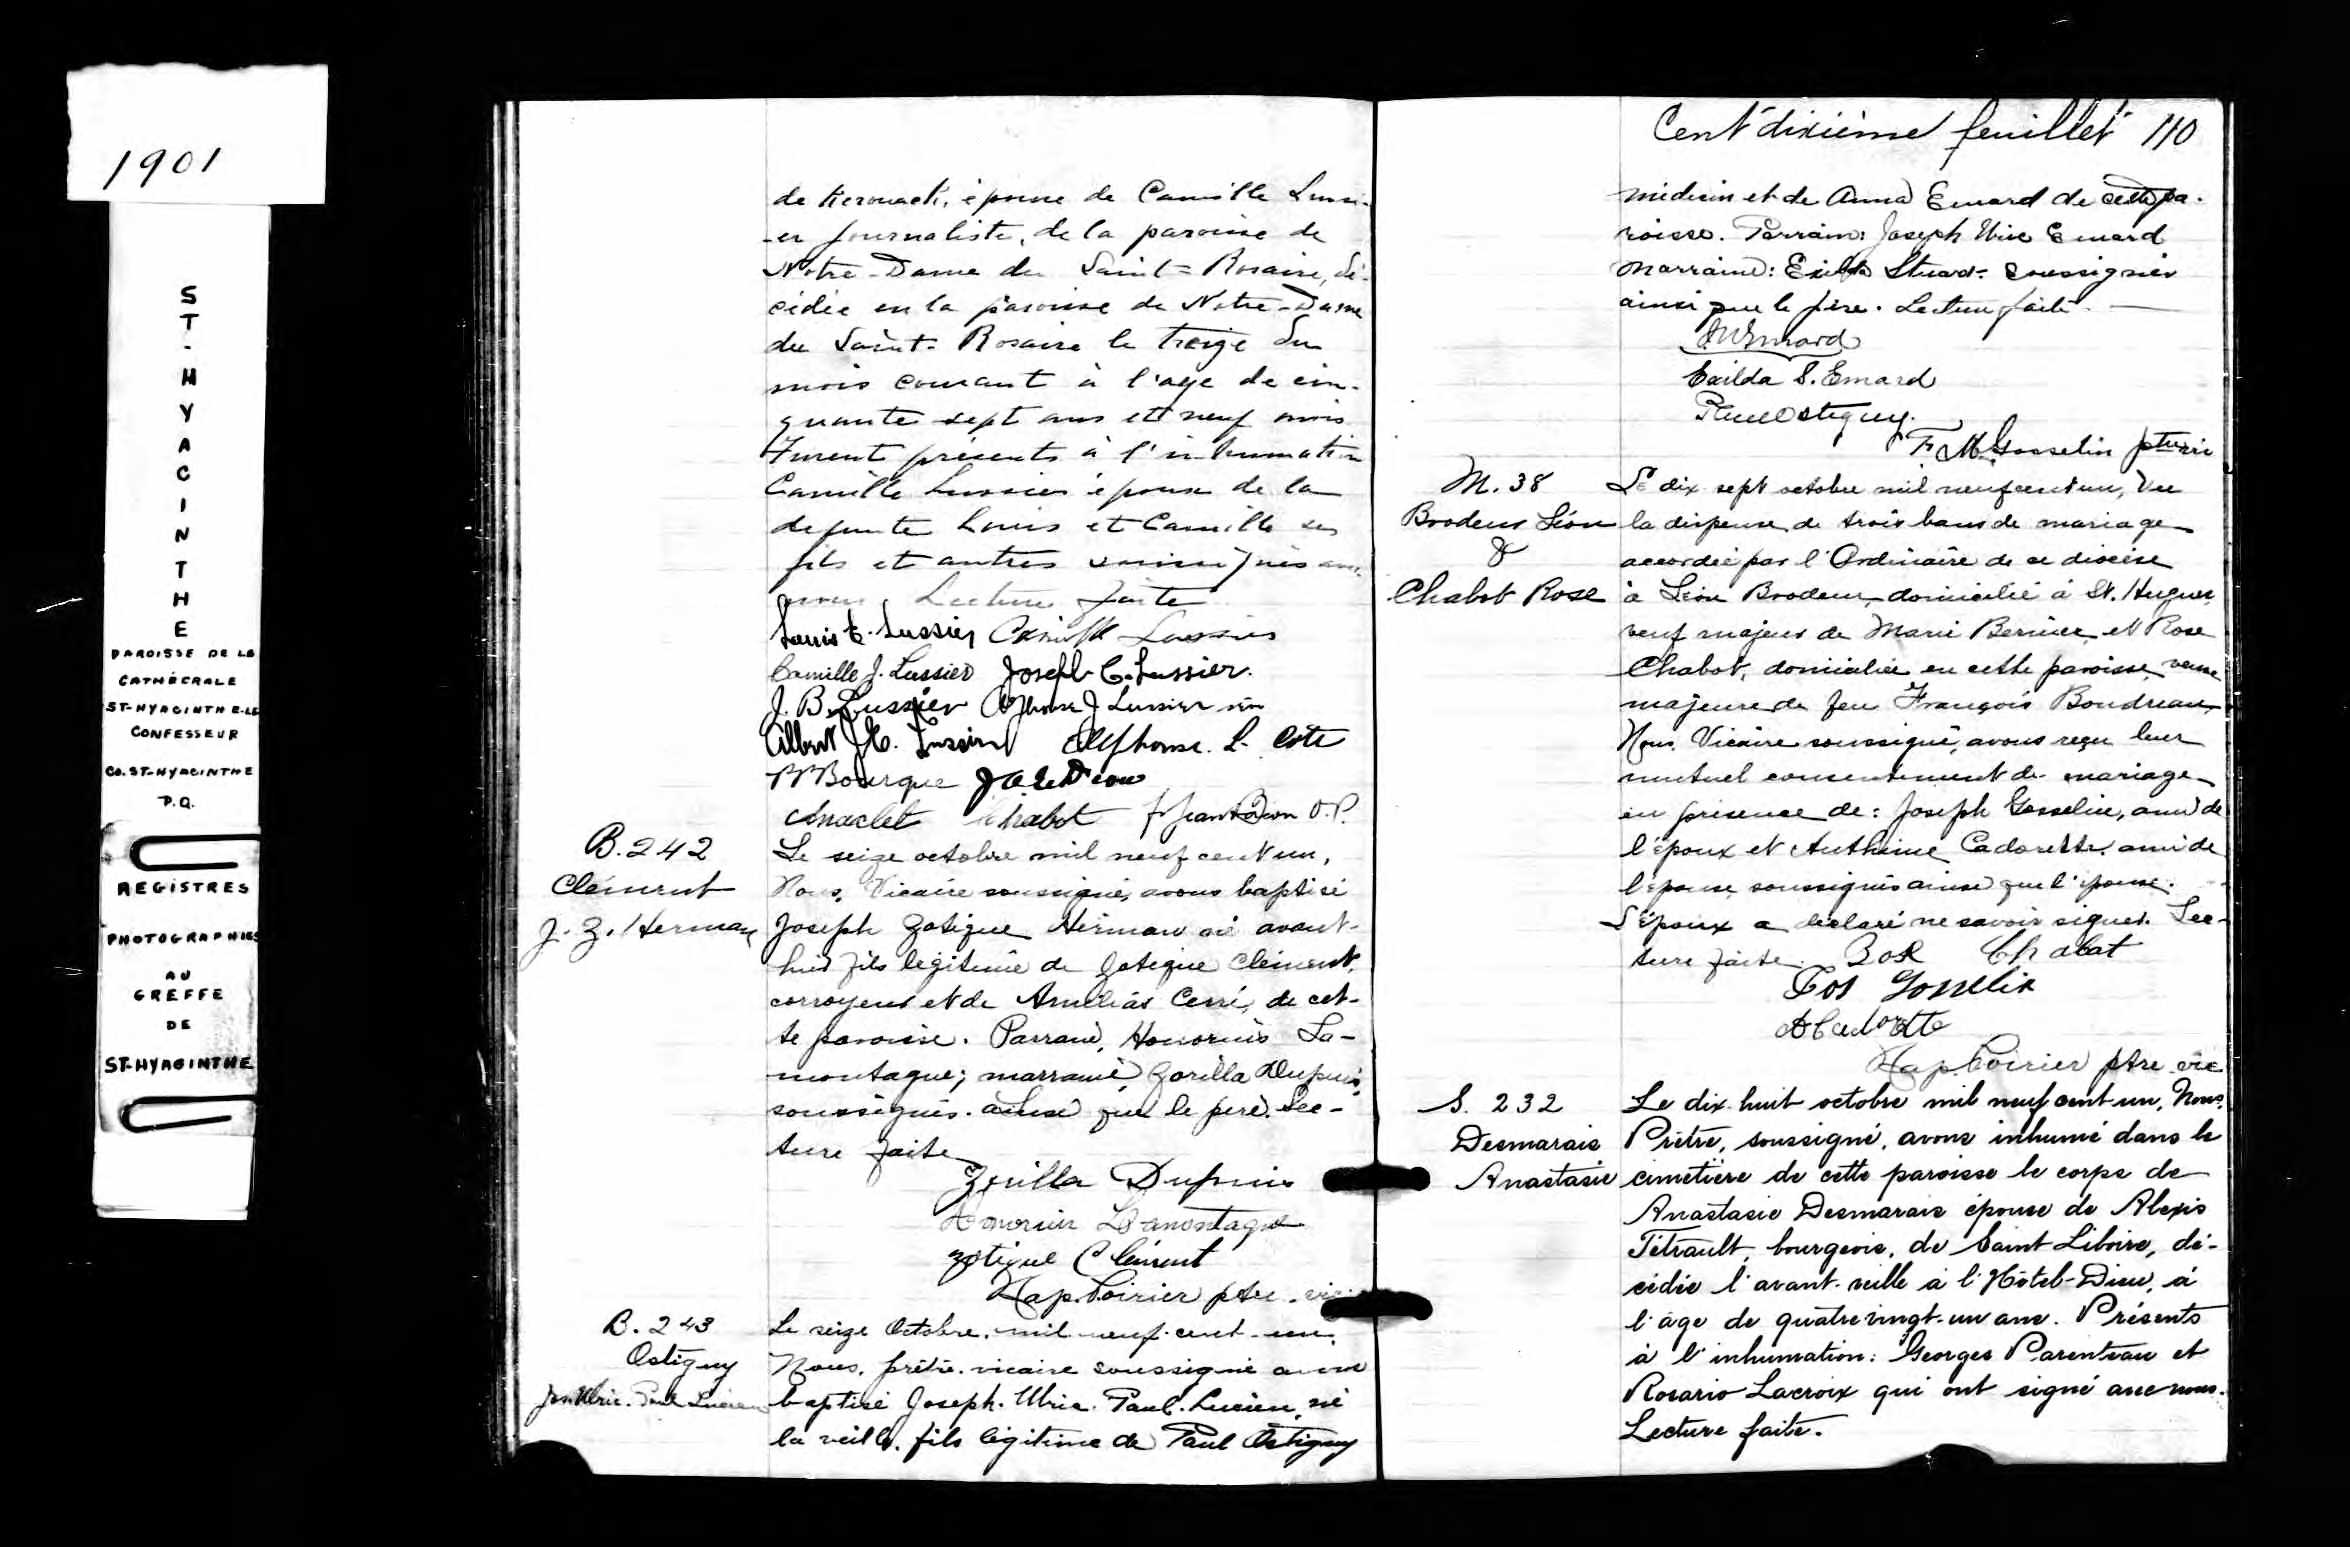 1901
ST-HYACINTHE
PAROISSE DE LA
CATHÉDRALE
ST-HYACINTHE-LE
CONFESSEUR
CO. ST-HYACINTHE
P.Q.
REGISTRES
PHOTOGRAPHIES
AU
GREFFE
DE
ST-HYACINTHE
de Kerouack, épouse de Camille Lussi-
-er journaliste, de la paroisse de
Notre-Dame du Saint-Rosaire, dé-
cédée en la paroisse de Notre-Dame
du Saint-Rosaire le treize du
mois courant à l'age de cin-
quante sept ans et neuf mois
Furent présents à l'inhumation
Camille Lussier époux de la
defunte Louis et Camille ses
fils et autres soussignés avec
nous. Lecture faite
Louis C. Lussier Camille Lussier
Camille J. Lussier Joseph C. Lussier.
J. B. Lussier Alphonse J Lussier
Albert Lussier Alphonse L. Côté
Bourque
Anaclet Chabot O.P.
B. 242
Clément
J. Z. Herman
Le seize octobre mil neuf cent un,
Nous, Vicaire soussigné, avons baptisé
Joseph Zotique Herman né avant-
hier fils légitime de Zotique Clément,
corroyeur et de Amelias Cerré, de cet-
te paroisse. Parrain, Honorius La-
montagne; marraine, Zorilla Dupuis,
soussignés. ainsi que le père. Lec-
ture faite
Zorilla Dupuis
Lamontagne
Zotique Clément
Nap. Poirier ptre. vic.
B. 243
Ostiguy
Jos. Ulric. Paul Lucien
Le seize Octobre. mil neuf-cent-un.
Nous, prêtre. vicaire soussigné avons
baptisé Joseph. Ulric. Paul. Lucien, né
la veille, fils légitime de Paul Ostiguy
Cent dixième feuillet 110
médecin et de Anna Emard de cette pa-
roisse. Parrain: Joseph Ulric Emard
Marraine: Exilda Stuard. Soussignés
ainsi que le père. Lecture faite.
Emard
Exilda S. Emard
Paul Ostiguy.
F. M. Gosselin ptre vic
M. 38
Brodeur Léon
&
Chabot Rose
Le dix sept octobre mil neuf cent un, Vu
la dispense de trois bans de mariage
accordée par l'Ordinaire de ce diocèse
à Léon Brodeur, domicilié à St. Hugues,
veuf majeur de Marie Bernier et Rose
Chabot, domiciliée en cette paroisse, veuve
majeure de feu François Boudreau,
Nous, Vicaire soussigné, avons reçu leur
mutuel consentement de mariage
en présence de: Joseph Gosselin, ami de
l'époux et Anthime Cadorette ami de
l'épouse soussignés ainsi que l'épouse.
L'époux a declaré ne savoir signer. Lec-
ture faite. Rose Chabat
Jos Gosselin
A Cadorette
Nap. Poirier ptre. vic
S. 232
Desmarais
Anastasie
Le dix-huit octobre mil neuf cent-un, Nous,
Prêtre, soussigné, avons inhumé dans le
cimetière de cette paroisse le corps de
Anastasie Desmarais épouse de Alexis
Tétrault, bourgeois, de Saint Liboire, dé-
cédée l'avant-veille à l'Hôtel-Dieu, à
l'âge de quatre vingt-un ans. Présents
à l'inhumation: Georges Parenteau et
Rosario Lacroix qui ont signé avec nous.
Lecture faite.